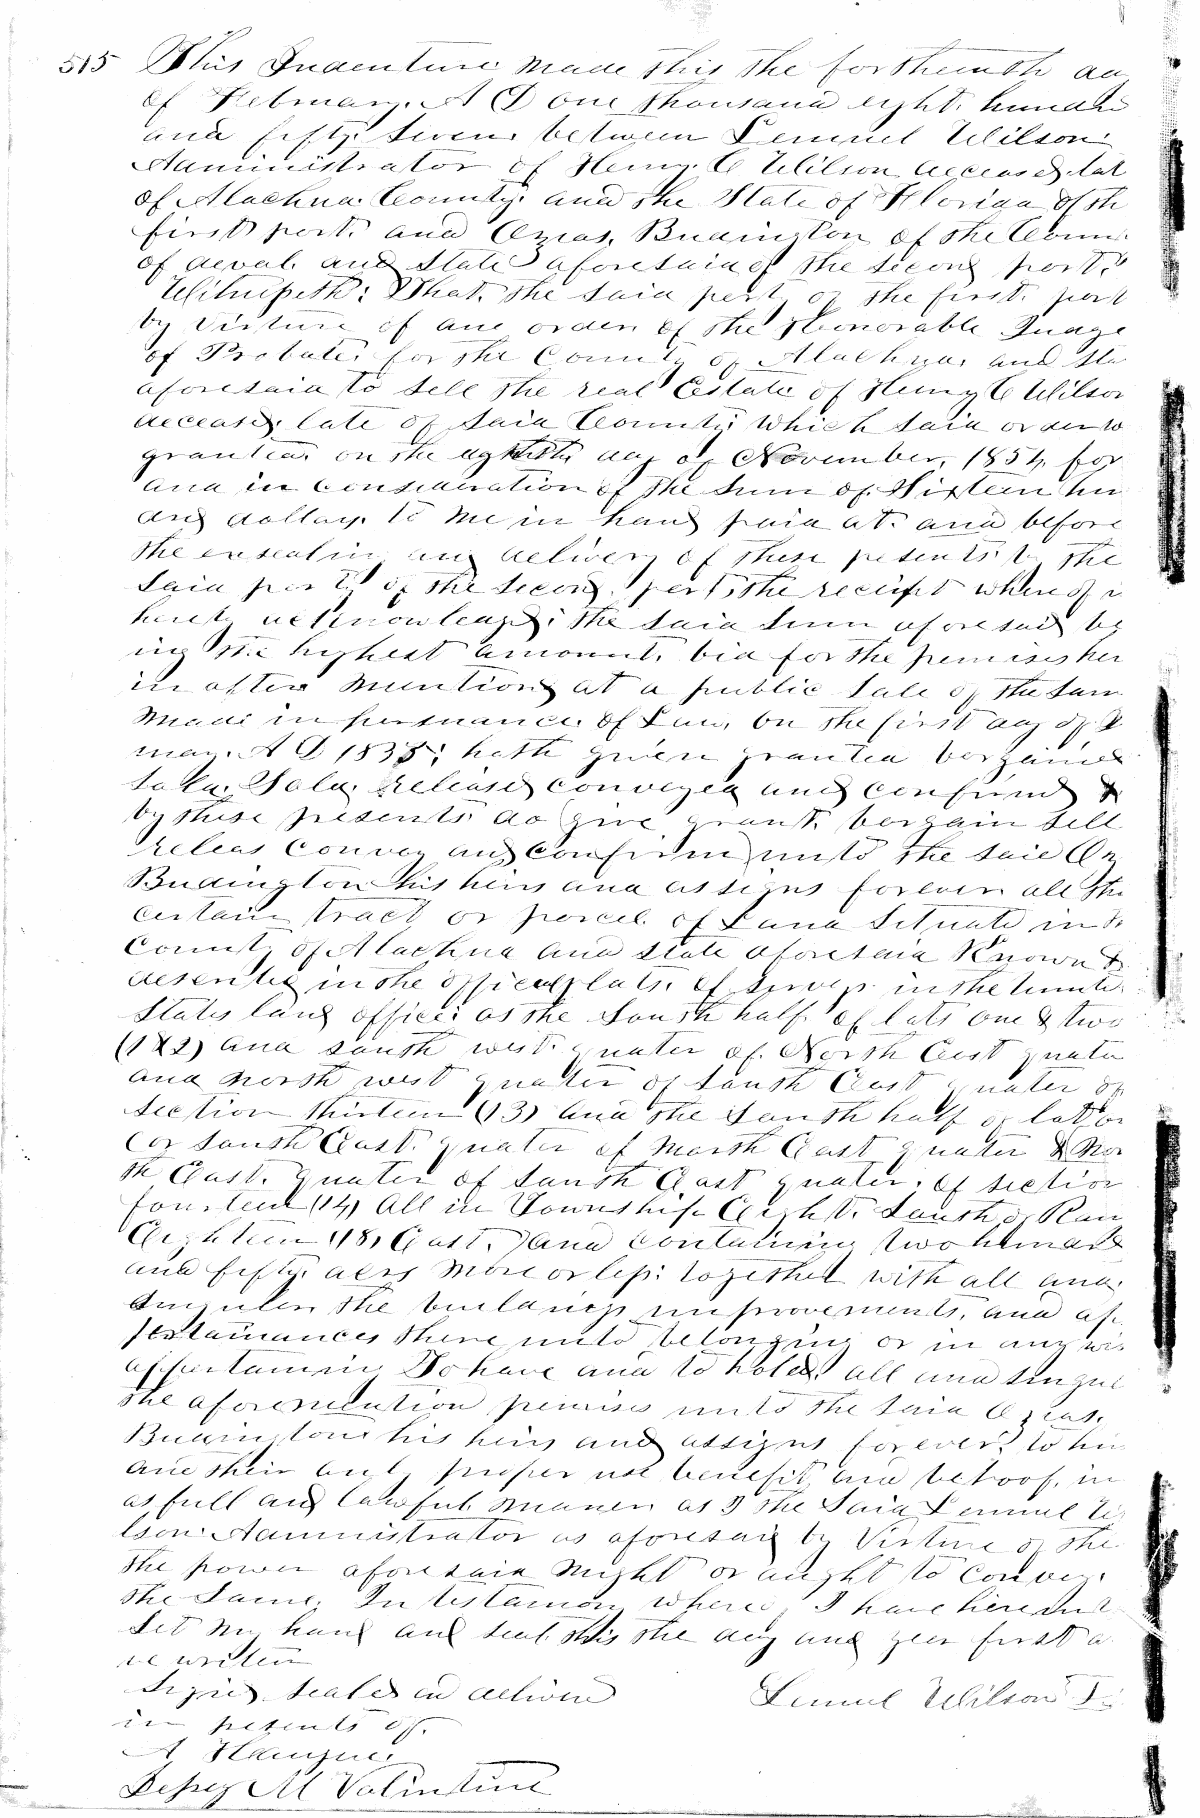 515 This Indenture made this the fortheenth da
of February. A D one thousand eight hundre
and fifty seven between Lemuel Wilson
Administrator of Henry C Wilson deceased lat
of Alachua County and the State of Florida of th
first part and Ozias. Budington of the Coun
of deval and State aforesaid of the second part
Witnesseth: That the said party of the first part
by Virture of an order of the Honorable Judge
of Probate for the County of Alachua and sta
aforesaid to sell the real Estate of Henry C Wilson
deceased late of Said County which said order w
granted on the day of November, 1854, for
and in consideration of the sum of Sixteen hun
dred dollars to me in hand paid at and before
the ensealing and delivery of these pesents by the
said party of the second part the receipt where of i
herety acknowledged: the said sum aforesaid be
ing the highest amount bid for the premises her
in after mentioned at a public sale of the sam
made in persuance of Law, on the first day of
may. A D 1835; hath given granted bargained
Sold. released conveyed and confirmed &
by these presents do give grant bargain sell
releas convey and confirm unto the said Oz
Budington his heirs and assigns forever all tha
certain tract or parcel of Land Situate in th
County of Alachua and state aforesaid Known &
described in the offical plats of survey in the Unite
States land office as the South half of lots one & two
(1 & 2) and south west quater of North East quate
and north west quater of South East quater of
section thirteen (13) and the South half of lot on
(or south East quater of North East quater & Nor
th East quater of South East quater of section
fourteen (14) All in Township Eight South of Ran
Eighteen (18) East.) and containing two hundred
and fifty acrs more or less: together with all and
singuler the buildings improvements, and ap
pertainances there unto belonging or in any wis
appertaining To have and to hold all and singul
the aforemention premises unto the said Ozias.
Budington his heirs and assigns forever to him
and their only proper use benefit and behoof, in
as full and lawful manner as I the Said Lemuel Wi
lson Administrator as aforesaid by Virture of the
the power aforesaid might or aught to convey
the Same. In testamony whereof I have hereunt
Set my hand and seal this the day and year first a
ve writen
Signed sealed and deliverd Lemuel Wilson
in pesents of.
A
Jessey M Valintine